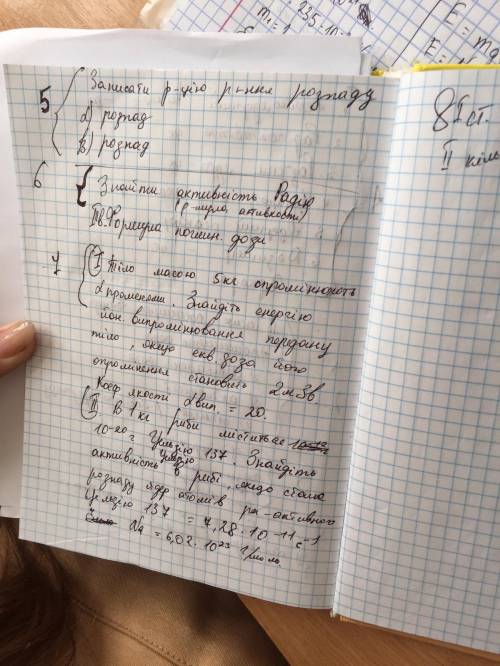 235·10
E = m
5
Записати р-цію р-ння розпаду
α) розпад
β) розпад
6
Знайти активність Радію
(ф-мула активності)
Формула поглин. дози
7
I Тіло масою 5кг опромінюють
α променями. Знайдіть енергію
йон. випромінювання передану
тіло, якщо екв. доза його
опромінення становить 2мЗв
Коеф якости α вип. = 20.
II В 1 кг риби міститься
10⁻²⁰ г Цезію 137. Знайдіть
активність в рибі, якщо стала
розпаду ядер атомів ра-активного
Цезію 137 = 7,28·10⁻¹¹ с⁻¹
= 6,02·10²³ 1/моль
8 I ст.
II